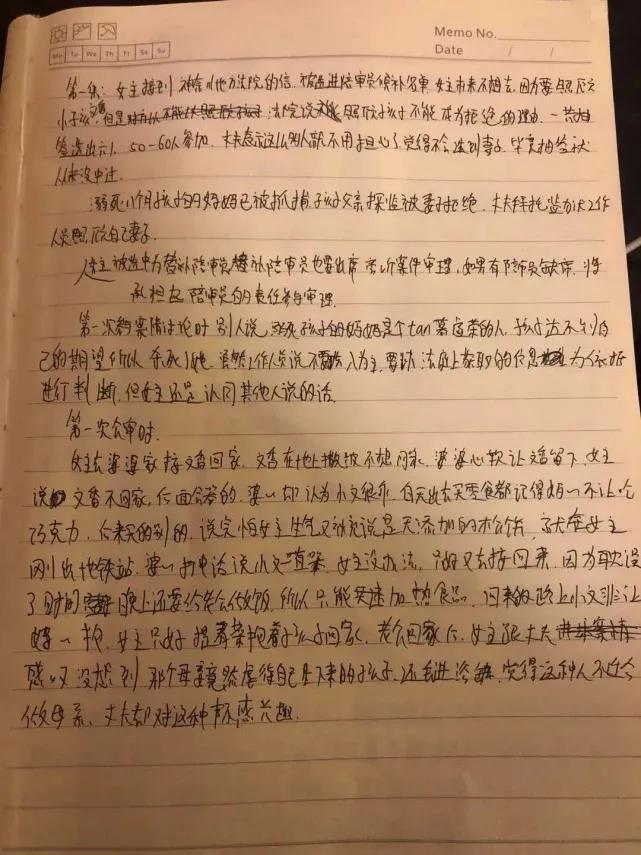 Memo No.
Date / /
Mo Tu We Th Fr Sa Su
第一集：女主接到 神奈川地方法院的信，被选进陪审员候补名单，女主本来不想去，因为要照顾
小孩，但是 法院说 照顾孩子不能成为拒绝的理由，一共抽
签选出六人，50-60人参加，丈夫表示这么多人就不用担心了，觉得不会选到妻子，毕竟抽签就
从来没中过。
溺死八个月孩子的妈妈已被抓捕，孩子父亲探监被妻子拒绝，丈夫拜托监狱工作
人员照顾自己妻子。
女主被选中为替补陪审员，替补陪审员也要出席 案件审理，如果有陪审员缺席，将
承担起陪审员的责任参与审理。
第一次的案情讨论时，别人说，溺死孩子的妈妈是个tan慕虚荣的人，孩子达不到自
己的期望所以杀死了她，虽然工作人员说不要 入为主，要以法庭上获取的信息 为依据
进行判断，但女主还是认同其他人说的话。
第一次公审时，
女主去婆婆家接文香回家，文香在地上撒泼不想回家，婆婆心软让文香留下，女主
说 文香不回家，后面会 的，婆婆却认为小文很乖，白天出去买零食都记得妈妈不让吃
巧克力，后来买的别的，说完怕女主生气又补充说是无添加的 饼，
刚出地铁站，婆婆打电话说小文一直哭，女主没办法，只好又去接回来，因为耽误
了时间 晚上还要给老公做饭，所以只能买速加热食品，回来的路上小文非让
妈妈抱，女主只好提着菜抱着孩子回家，老公回家后，女主跟丈夫
感叹没想到那个母亲竟然虐待自己生下来的孩子，还 ，觉得这种人不适合
做母亲，丈夫却对这种事不感兴趣。